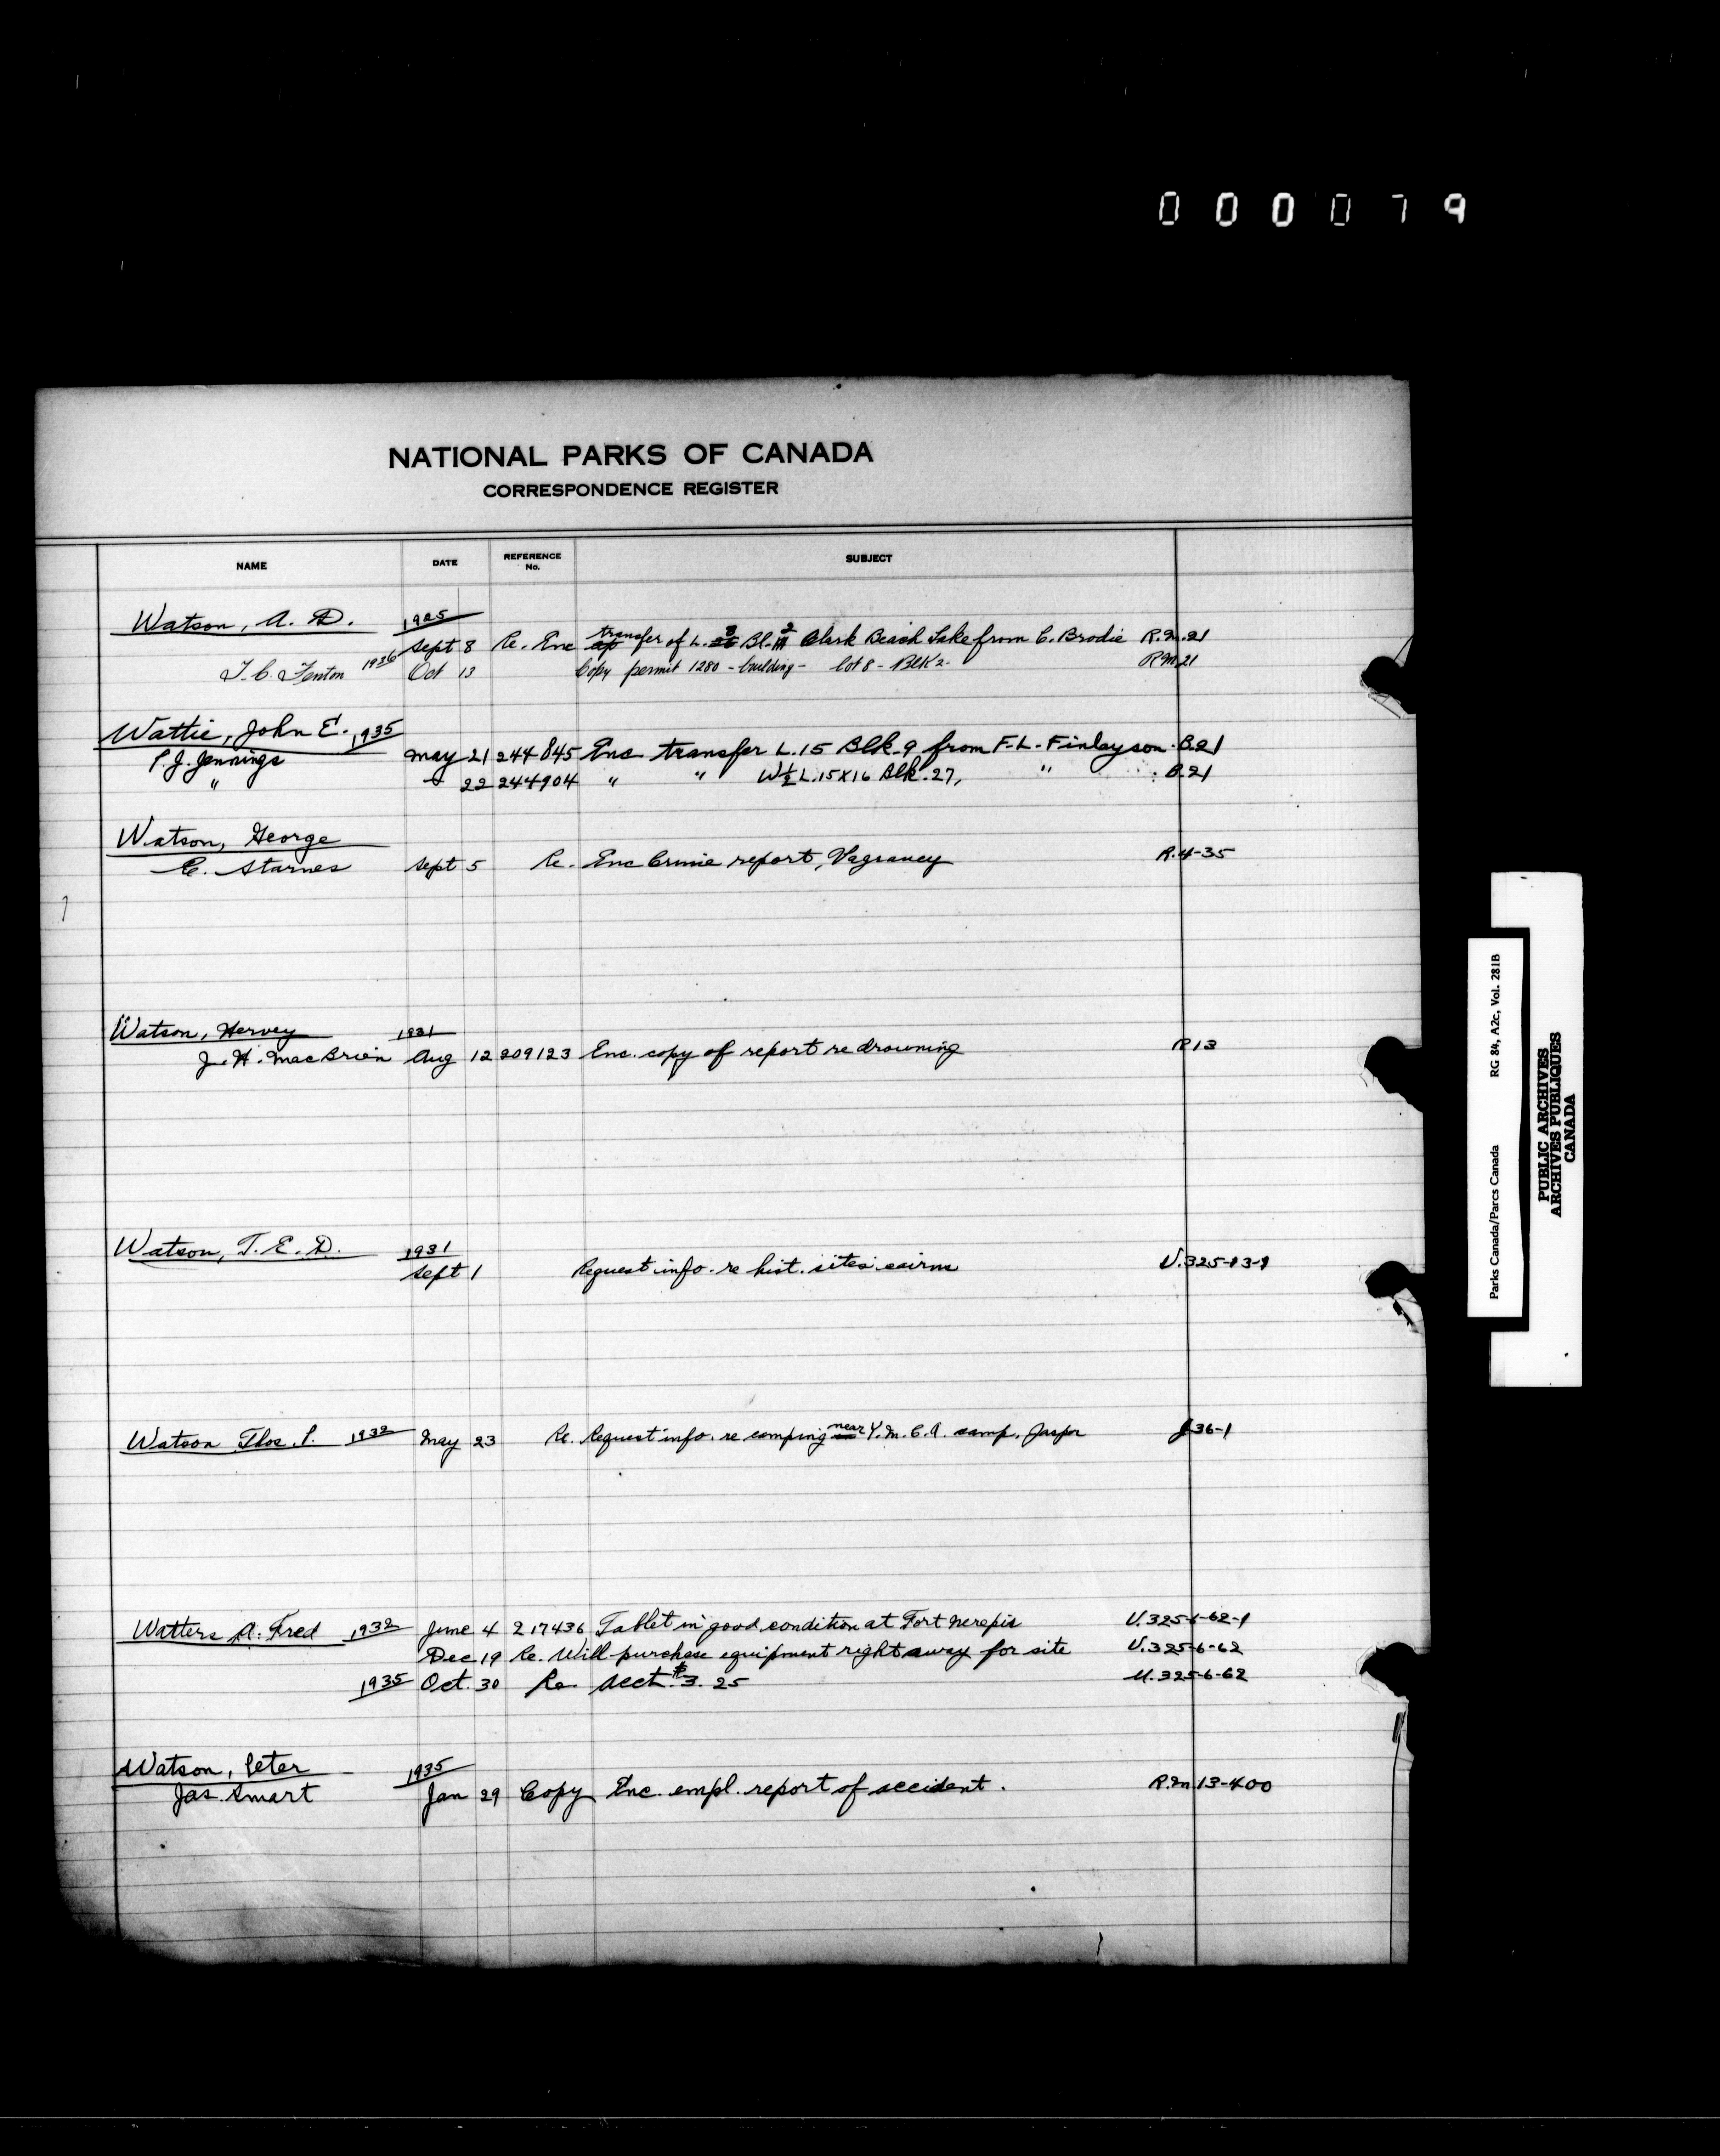 000079
NATIONAL PARKS OF CANADA
CORRESPONDENCE REGISTER
NAME DATE REFERENCE No. SUBJECT
Watson, A. D. 1925
Sept 8 Re. Enc transfer of L. 8 Bl. 2 Clark Beach Lake from C. Brodie R.M.21
T. C. Fenton 1936 Oct 13 Copy permit 1280 - building - lot 8 - Blk 2 R.M.21
Wattie, John E. 1935
P. J. Jennings May 21 244845 Enc transfer L. 15 Blk. 9 from F. L. Finlayson. B.21
" " 22 244904 " " W½ L. 15 X 16 Blk. 27, " B.21
Watson, George
C. Starnes Sept 5 Re. Enc Crime report, Vagrancy R.4-35
Watson, Hervey 1931
J. H. MacBrien Aug 12 209123 Enc. copy of report re drowning R13
Watson, T. E. D. 1931
Sept 1 Request info. re hist. sites cairns U.325-13-1
Watson Thos. P. 1932 May 23 Re. Request info. re camping near Y.M.C.A. camp, Jasper J36-1
Watters A. Fred 1932 June 4 217436 Tablet in good condition at Fort Nerepis U.325-6-62-1
Dec 19 Re. Will purchase equipment right away for site U.325-6-62
1935 Oct. 30 Re. Acct. $3.25 U.325-6-62
Watson, Peter 1935
Jas. Smart Jan 29 Copy Enc. empl. report of accident. R.M.13-400
Parks Canada/Parcs Canada RG 84, A2c, Vol. 281B
PUBLIC ARCHIVES
ARCHIVES PUBLIQUES
CANADA